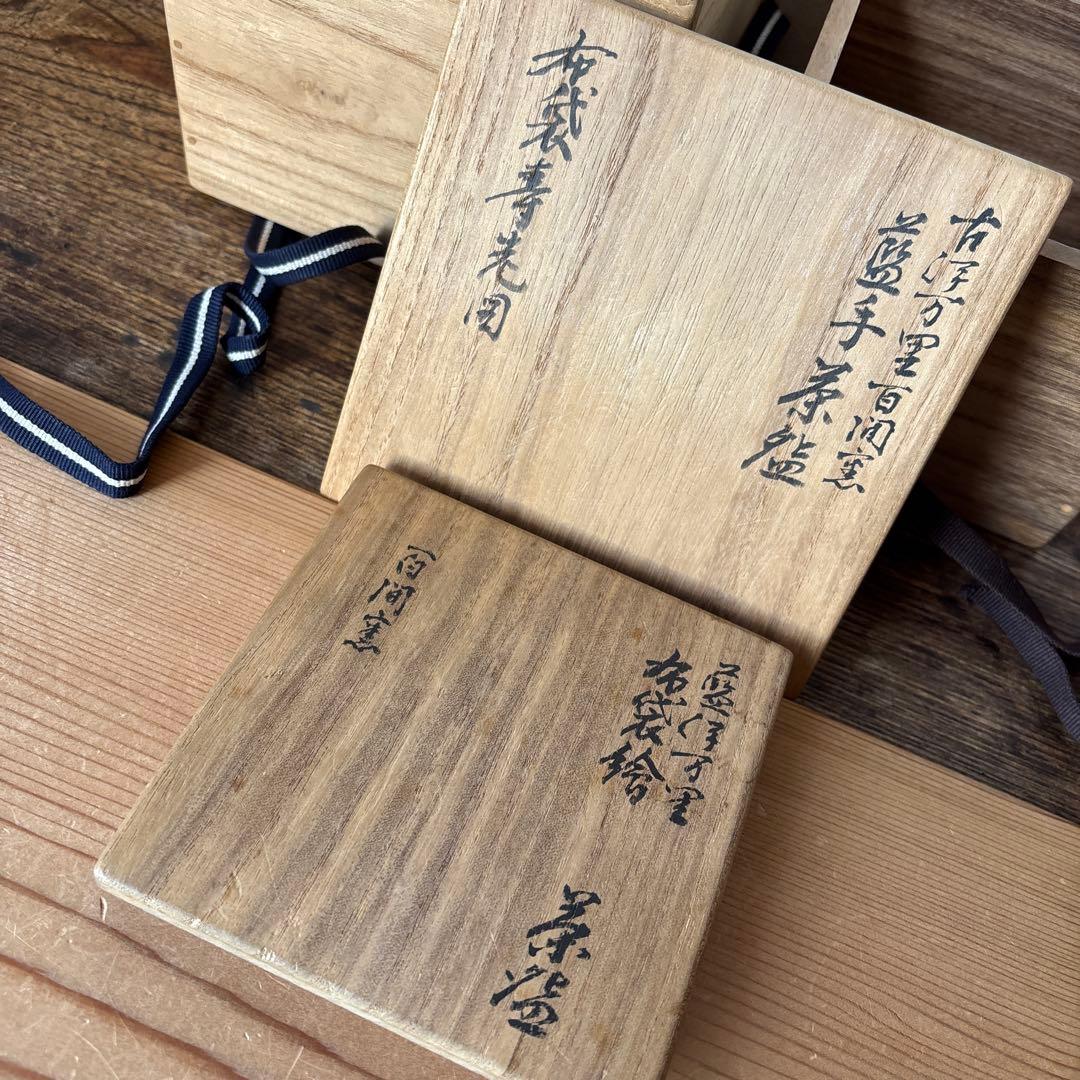 古伊万里百間窯
藍手茶盌
布袋壽老図
藍伊万里
布袋繪
茶盌
百間窯